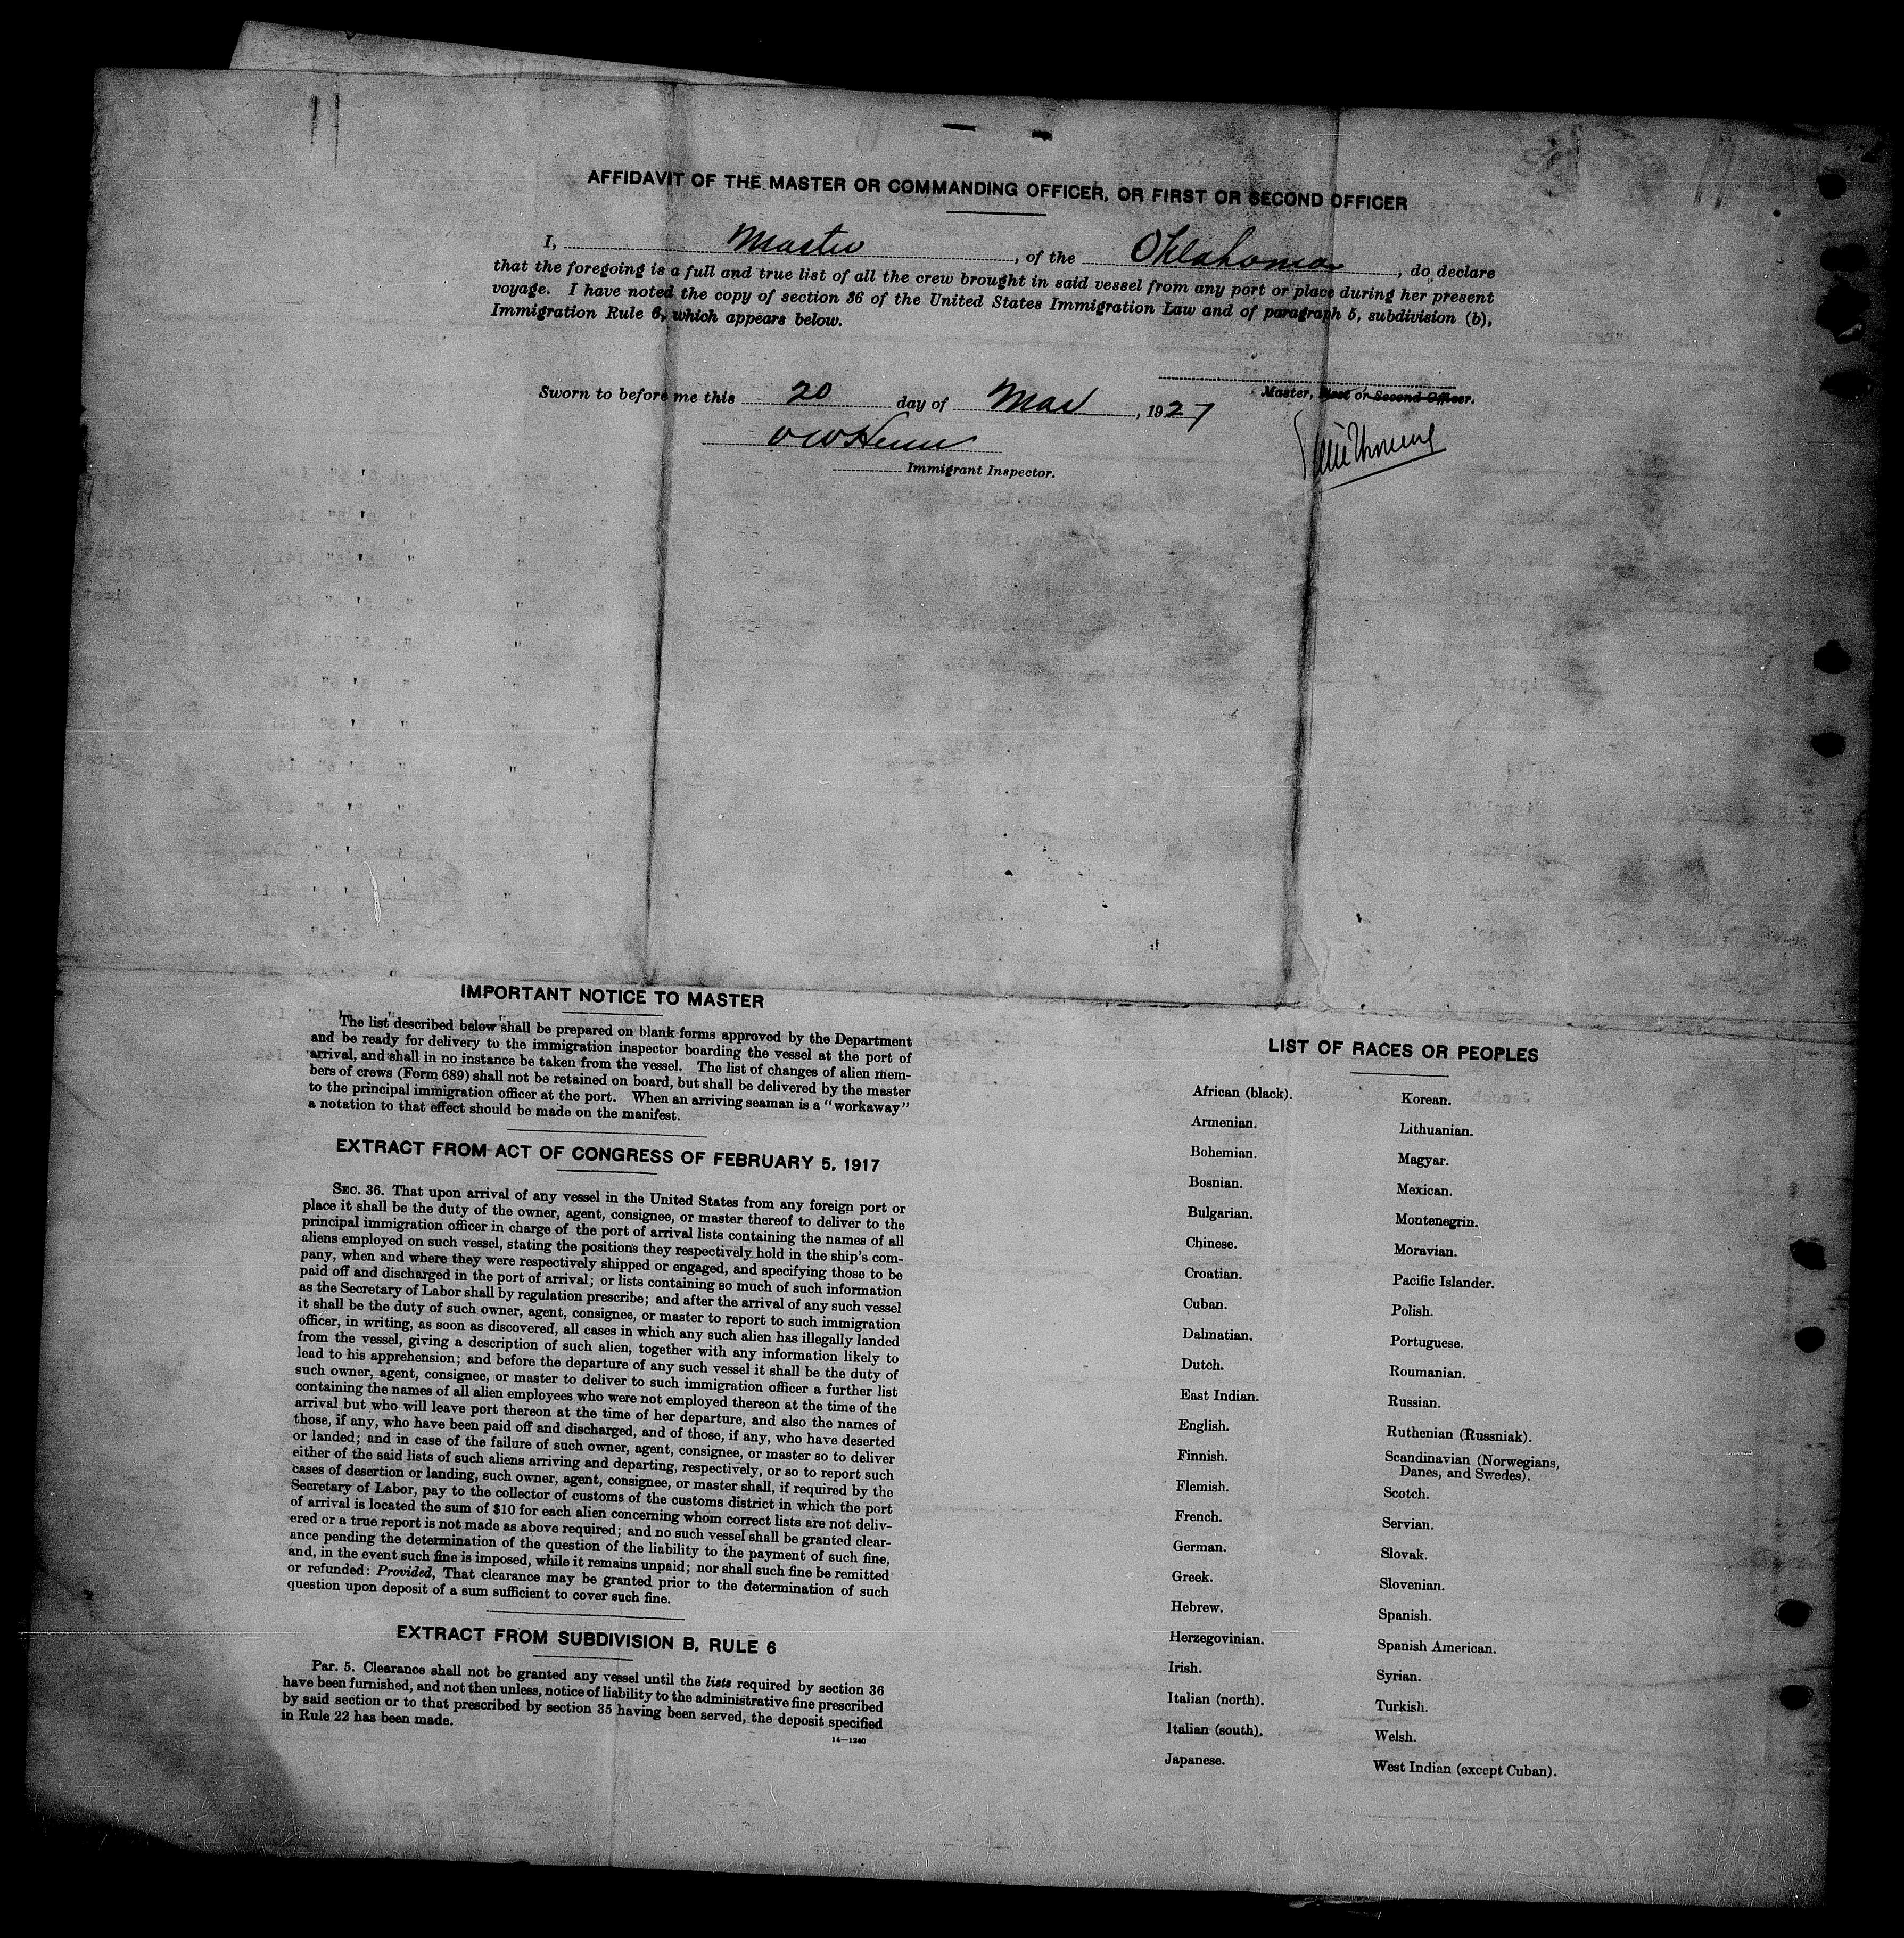 AFFIDAVIT OF THE MASTER OR COMMANDING OFFICER, OR FIRST OR SECOND OFFICER
I, Master, of the Oklahoma, do declare
that the foregoing is a full and true list of all the crew brought in said vessel from any port or place during her present
voyage. I have noted the copy of section 36 of the United States Immigration Law and of paragraph 5, subdivision (b),
Immigration Rule 6, which appears below.
Master, First or Second Officer.
Sworn to before me this 20 day of Mar, 1927
Immigrant Inspector.
IMPORTANT NOTICE TO MASTER
The list described below shall be prepared on blank forms approved by the Department
and be ready for delivery to the immigration inspector boarding the vessel at the port of
arrival, and shall in no instance be taken from the vessel. The list of changes of alien mem-
bers of crews (Form 689) shall not be retained on board, but shall be delivered by the master
to the principal immigration officer at the port. When an arriving seaman is a "workaway"
a notation to that effect should be made on the manifest.
EXTRACT FROM ACT OF CONGRESS OF FEBRUARY 5, 1917
SEC. 36. That upon arrival of any vessel in the United States from any foreign port or
place it shall be the duty of the owner, agent, consignee, or master thereof to deliver to the
principal immigration officer in charge of the port of arrival lists containing the names of all
aliens employed on such vessel, stating the positions they respectively hold in the ship's com-
pany, when and where they were respectively shipped or engaged, and specifying those to be
paid off and discharged in the port of arrival; or lists containing so much of such information
as the Secretary of Labor shall by regulation prescribe; and after the arrival of any such vessel
it shall be the duty of such owner, agent, consignee, or master to report to such immigration
officer, in writing, as soon as discovered, all cases in which any such alien has illegally landed
from the vessel, giving a description of such alien, together with any information likely to
lead to his apprehension; and before the departure of any such vessel it shall be the duty of
such owner, agent, consignee, or master to deliver to such immigration officer a further list
containing the names of all alien employees who were not employed thereon at the time of the
arrival but who will leave port thereon at the time of her departure, and also the names of
those, if any, who have been paid off and discharged, and of those, if any, who have deserted
or landed; and in case of the failure of such owner, agent, consignee, or master so to deliver
either of the said lists of such aliens arriving and departing, respectively, or so to report such
cases of desertion or landing, such owner, agent, consignee, or master shall, if required by the
Secretary of Labor, pay to the collector of customs of the customs district in which the port
of arrival is located the sum of $10 for each alien concerning whom correct lists are not deliv-
ered or a true report is not made as above required; and no such vessel shall be granted clear-
ance pending the determination of the question of the liability to the payment of such fine,
and, in the event such fine is imposed, while it remains unpaid; nor shall such fine be remitted
or refunded: Provided, That clearance may be granted prior to the determination of such
question upon deposit of a sum sufficient to cover such fine.
EXTRACT FROM SUBDIVISION B, RULE 6
Par. 5. Clearance shall not be granted any vessel until the lists required by section 36
have been furnished, and not then unless, notice of liability to the administrative fine prescribed
by said section or to that prescribed by section 35 having been served, the deposit specified
in Rule 22 has been made.
14—1240
LIST OF RACES OR PEOPLES
African (black).
Armenian.
Bohemian.
Bosnian.
Bulgarian.
Chinese.
Croatian.
Cuban.
Dalmatian.
Dutch.
East Indian.
English.
Finnish.
Flemish.
French.
German.
Greek.
Hebrew.
Herzegovinian.
Irish.
Italian (north).
Italian (south).
Japanese.
Korean.
Lithuanian.
Magyar.
Mexican.
Montenegrin.
Moravian.
Pacific Islander.
Polish.
Portuguese.
Roumanian.
Russian.
Ruthenian (Russniak).
Scandinavian (Norwegians,
Danes, and Swedes).
Scotch.
Servian.
Slovak.
Slovenian.
Spanish.
Spanish American.
Syrian.
Turkish.
Welsh.
West Indian (except Cuban).